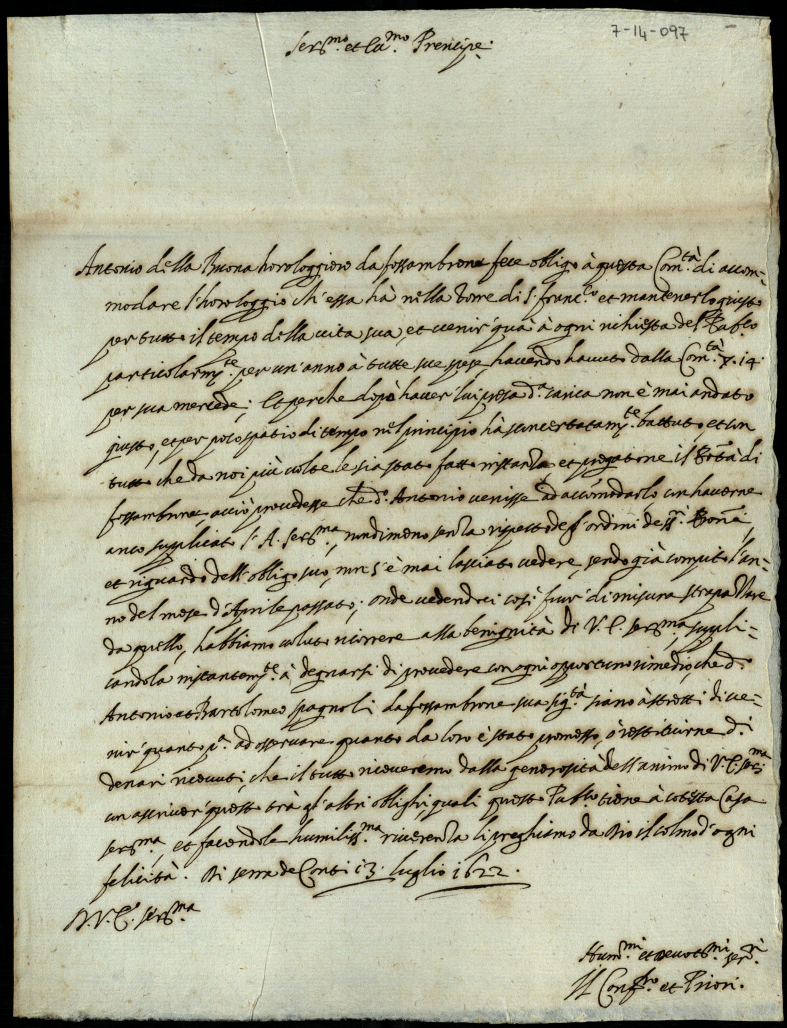 7-14-097
Ser.mo et Ca.mo Prencipe.
Antonio della Buona horologgiero da fossambrone fece obligo à questa Com.tà di accom=
modare l'horologgio ch'essa hà nella Torre di S. franc.co et mantenerlo giusto
per tutto il tempo della vita sua, et venir quà à ogni richiesta del Pub.co
particolarm.te per un'anno à tutte sue spese havendo havuto dalla Com.tà 14
per sua mercede; Et perche dopò haver lui presa d.a carica non è mai andato
giusto, et per poco spatio di tempo nel principio hà sconcertatam.te battuto, et con
tutto che da noi più volte le sia stato fatto instanza et pregatone il di
fossambrone, acciò provedesse che d.o Antonio venisse ad accomodarlo con haverne
anco supplicato l'A. Ser.ma, nondimeno senza rispetto degl'ordini
et riguardo dell'obligo suo, non s'è mai lasciato vedere, sendo già compito l'an=
no del mese d'Aprile passato; onde vedendoci così fuor di misura strapazzare
da quello, habbiamo voluto ricorrere alla benignità di V. Ser.ma, suppli=
candola instantem.te à degnarsi di provedere con ogni opportuno rimedio, che d.
Antonio et Bartolomeo Spagnoli da fossambrone sua sig.tà siano astretti di ve=
nir quanto p.a ad osservare quanto da loro è stato promesso, ò restituirne d.i
denari ricevuti, che il tutto riceveremo dalla generosità dell'animo di V. Ser.ma
con ascriver questo trà gl'altri oblighi, quali questo Pub.co tiene à cotesta Casa
Ser.ma, et facendole humiliss.ma riverenza li preghiamo da Dio il colmo d'ogni
felicità. Di Serra de Conti 13 luglio 1622.
D. V. Ser.ma
Hum.mi et Devot.mi ser.ri
Il Conf.ro et Priori.